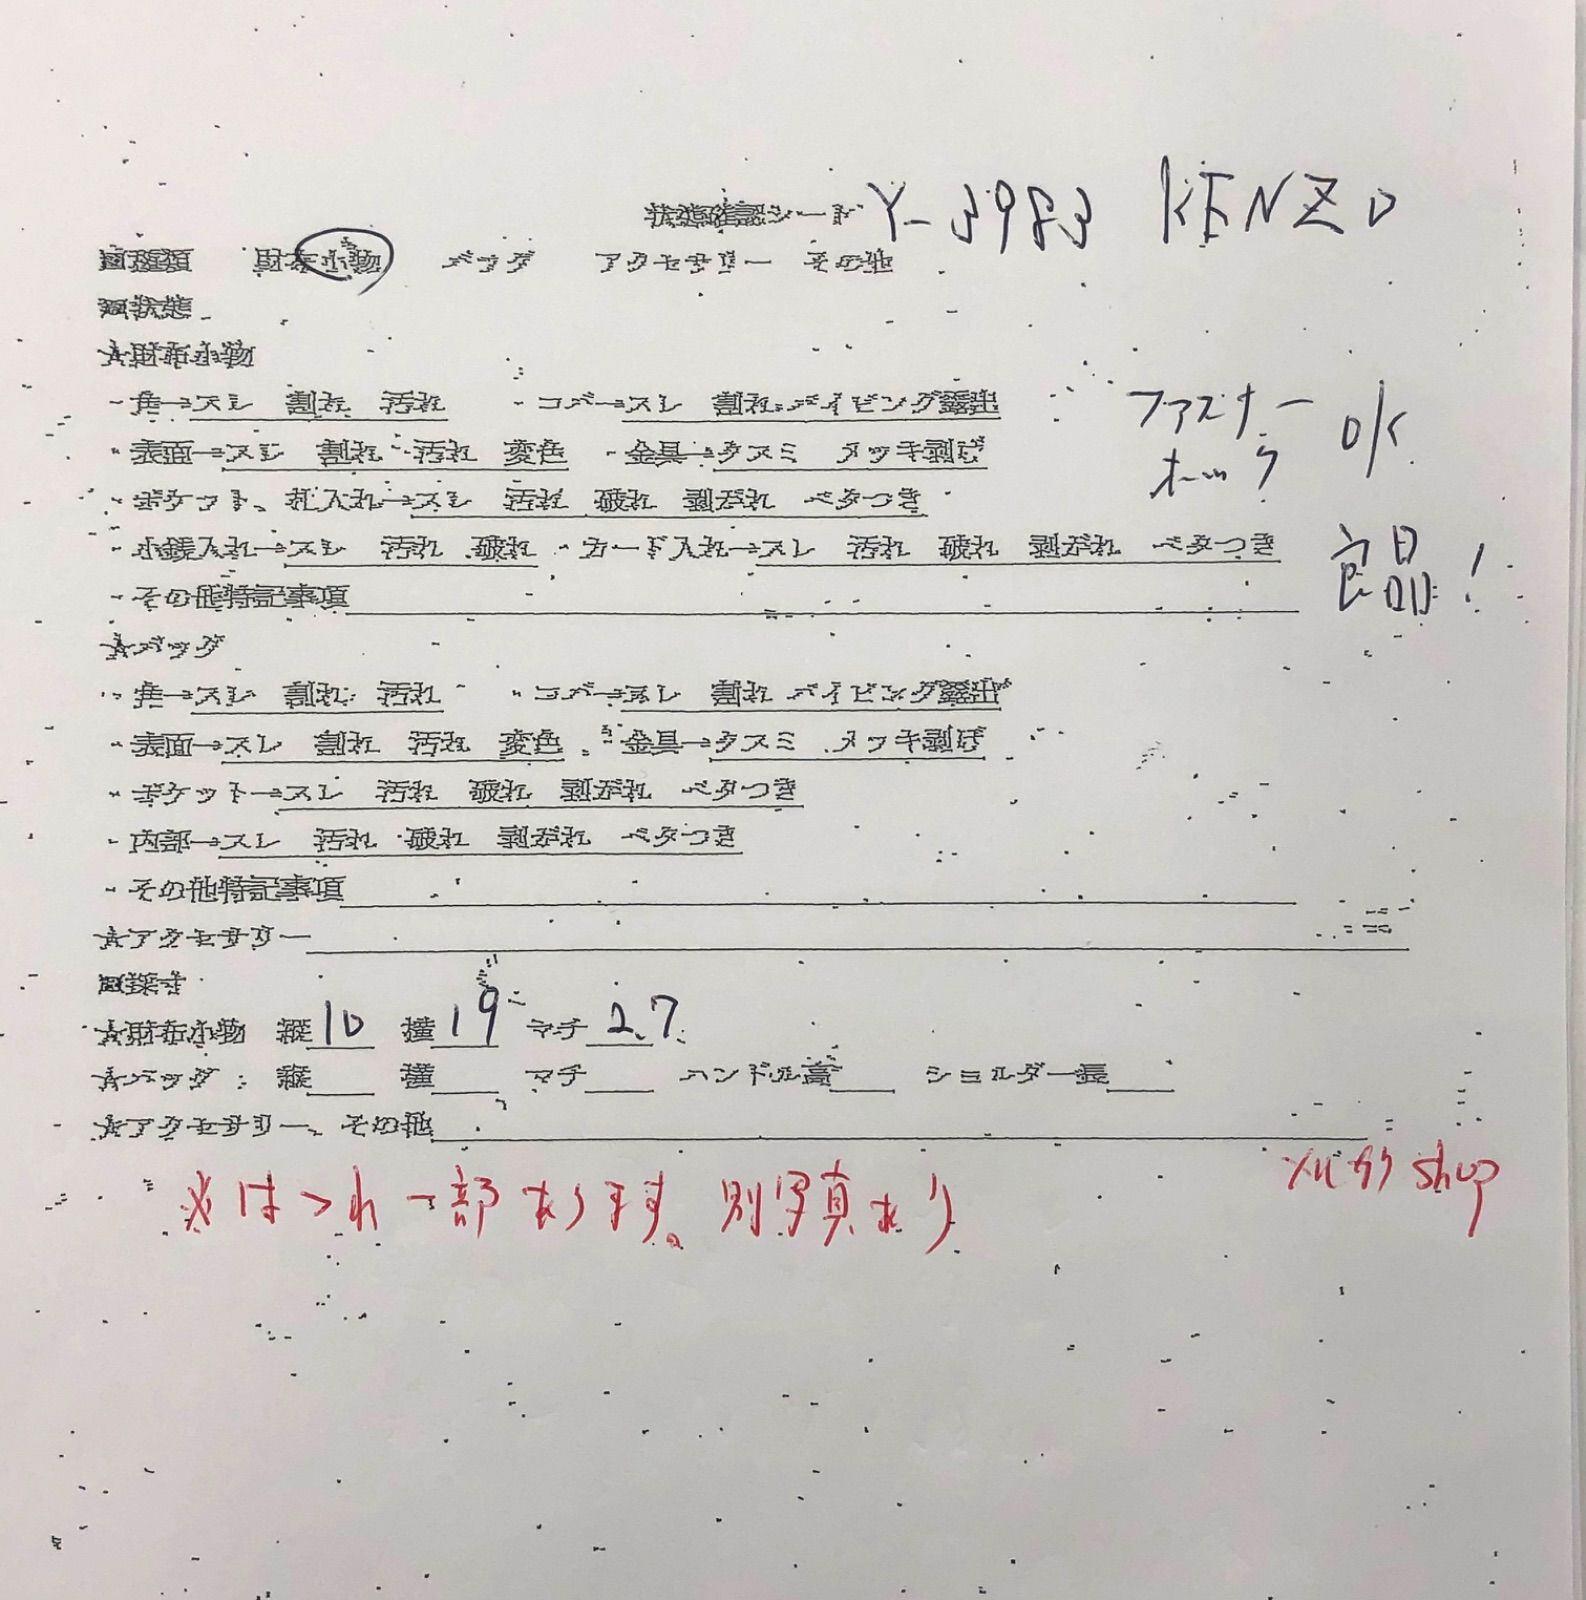 状態確認シート Y-3983 KENZO
□種類 財布小物 バッグ アクセサリー その他
□状態
☆財布小物
・角→スレ 割れ 汚れ ・コバ→スレ 割れ パイピング露出 ファスナー OK
・表面→スレ 割れ 汚れ 変色 ・金具→クスミ メッキ剥げ ホック
・ポケット、札入れ→スレ 汚れ 破れ 剥がれ ベタつき
・小銭入れ→スレ 汚れ 破れ ・カード入れ→スレ 汚れ 破れ 剥がれ ベタつき 良品!
・その他特記事項
☆バッグ
・角→スレ 割れ 汚れ ・コバ→スレ 割れ パイピング露出
・表面→スレ 割れ 汚れ 変色 ・金具→クスミ メッキ剥げ
・ポケット→スレ 汚れ 破れ 剥がれ ベタつき
・内部→スレ 汚れ 破れ 剥がれ ベタつき
・その他特記事項
☆アクセサリー
□採寸
☆財布小物 縦10 横19 マチ2.7
☆バッグ: 縦 横 マチ ハンドル高 ショルダー長
☆アクセサリー、その他
メルカリshop
※ほつれ一部あります。別写真あり